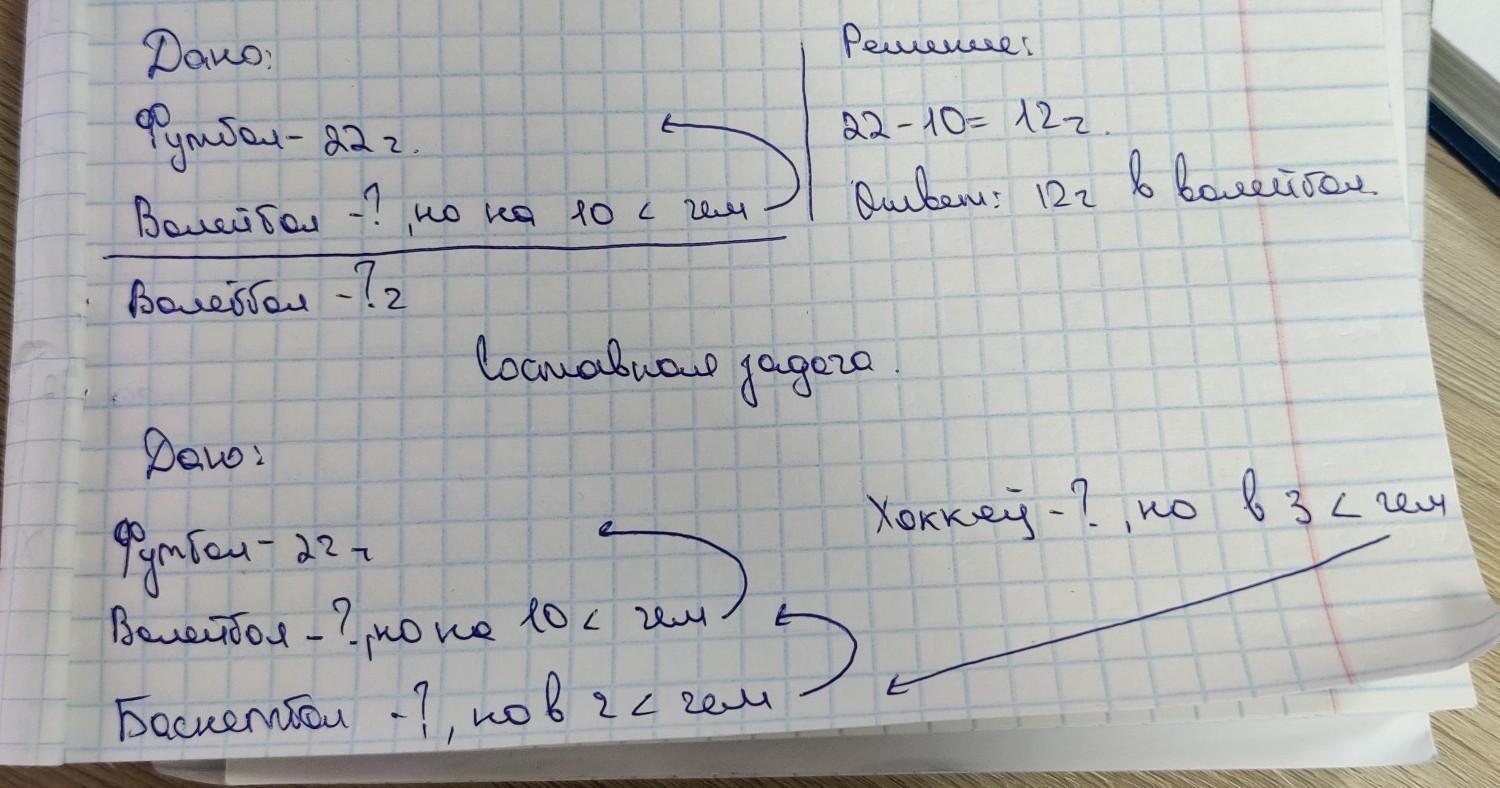 Дано:
Футбол - 22 г.
Волейбол - ?, но на 10 < чем
Волейбол - ? г
Решение:
22 - 10 = 12 г.
Ответ: 12 г в волейбол
Составная задача.
Дано:
Футбол - 22 г
Волейбол - ?, но на 10 < чем
Баскетбол - ?, но в 2 < чем
Хоккей - ?, но в 3 < чем